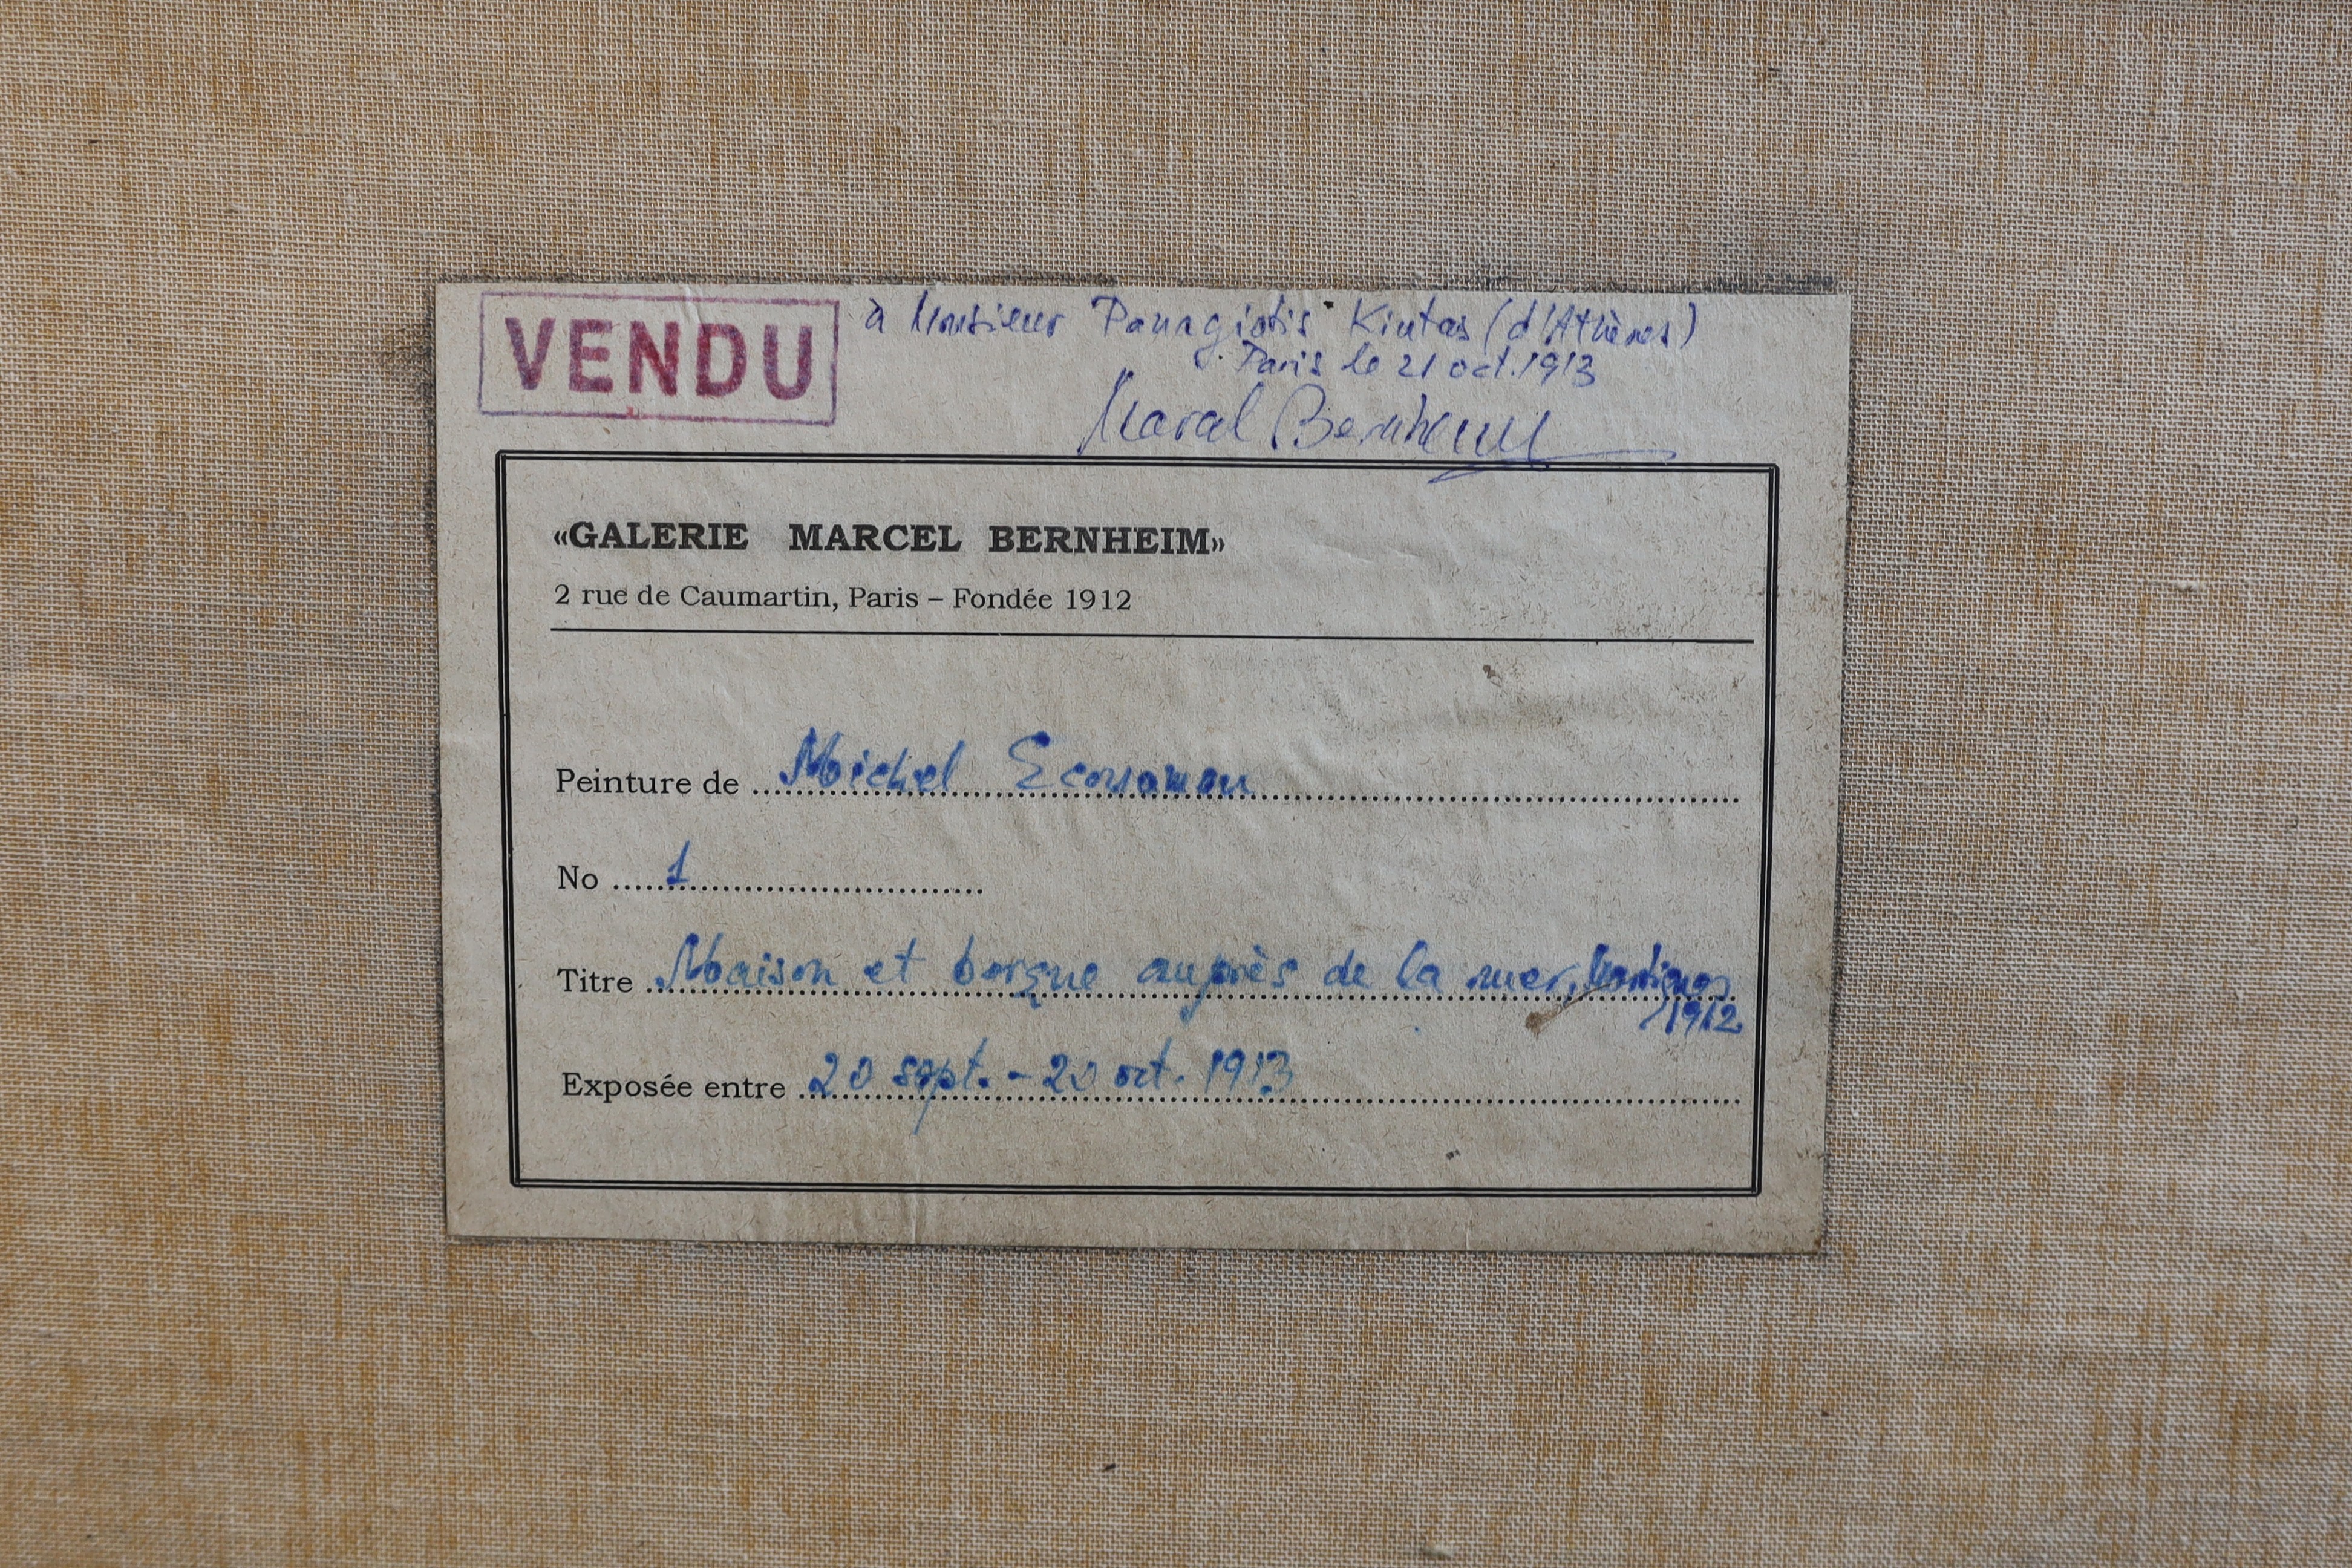 VENDU à Monsieur Panagiotis Kiutas (d'Athènes)
Paris le 21 oct. 1913
Marcel Bernheim
«GALERIE MARCEL BERNHEIM»
2 rue de Caumartin, Paris – Fondée 1912
Peinture de Michel Economou
No 1
Titre Maison et borgue auprès de la mer, Martigues
1912
Exposée entre 20 sept. - 20 oct. 1913